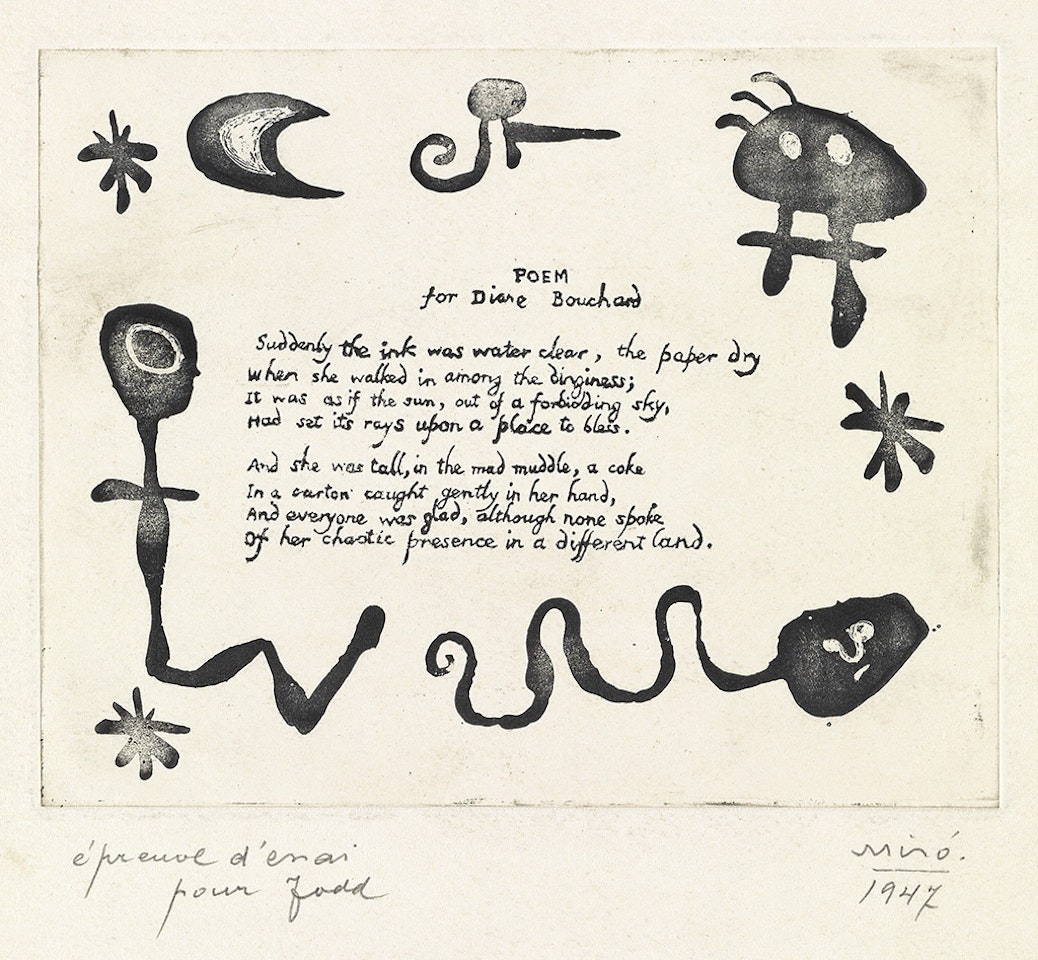 POEM
for Diane Bouchard
Suddenly the ink was water clear, the paper dry
When she walked in among the dinginess;
It was as if the sun, out of a forbidding sky,
Had set its rays upon a place to bless.
And she was tall, in the mad muddle, a coke
In a carton caught gently in her hand,
And everyone was glad, although none spoke
Of her chaotic presence in a different land.
épreuve d'essai
pour Todd
Miró.
1947